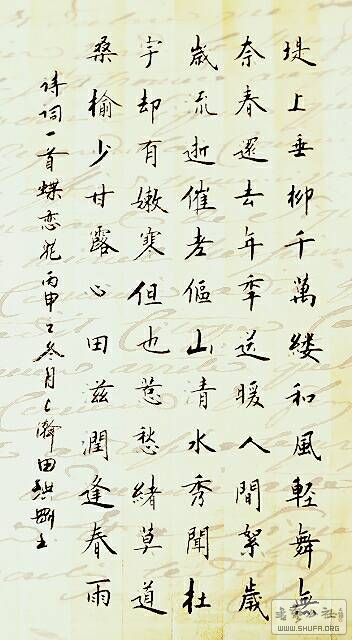 堤上垂柳千萬缕和風軽舞無
奈春還去年年送暖人間絮歲
歲流逝催老傴山清水秀聞杜
宇却有嫩寒但也惹愁緒莫道
桑榆少甘露心田滋潤逢春雨
诗词一首蝶恋花丙申之冬月瀚田
WWW.SHUFA.ORG